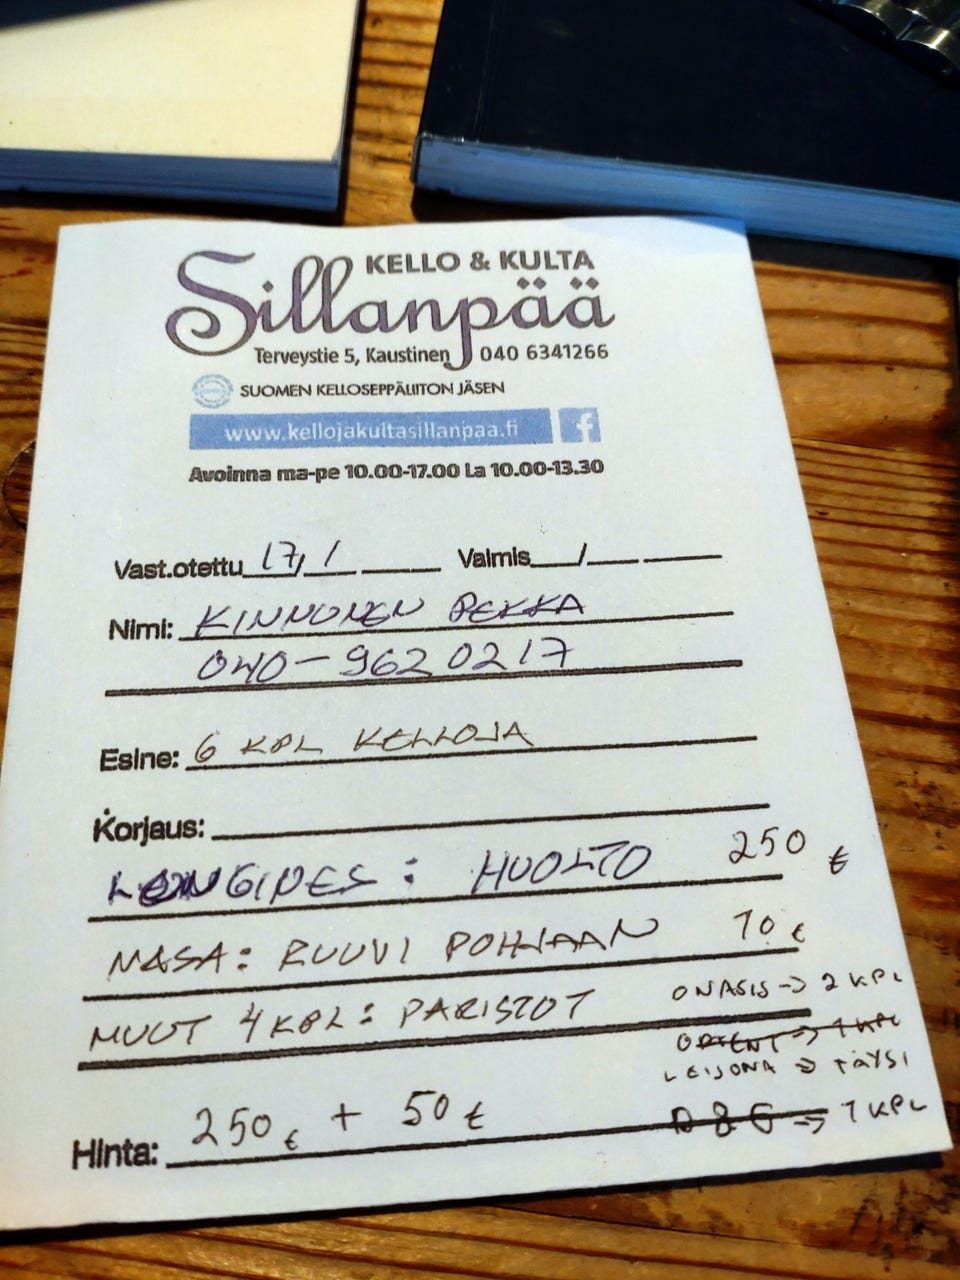 KELLO & KULTA
Sillanpää
Terveystie 5, Kaustinen 040 6341266
SUOMEN KELLOSEPPÄLIITON JÄSEN
www.kellojakultasillanpaa.fi f
Avoinna ma-pe 10.00-17.00 La 10.00-13.30
Vast.otettu 17/1 Valmis /
Nimi: KINNUNEN PEKKA
040-962 0217
Esine: 6 KPL KELLOJA
Korjaus:
LONGINES: HUOLTO 250 €
NASA: RUUVI POHJAAN 10 €
MUUT 4 KPL: PARISTOT ONASIS → 2 KPL
ORIENT → 1 KPL
LEIJONA → TÄYSI
D & G → 1 KPL
Hinta: 250 € + 50 €